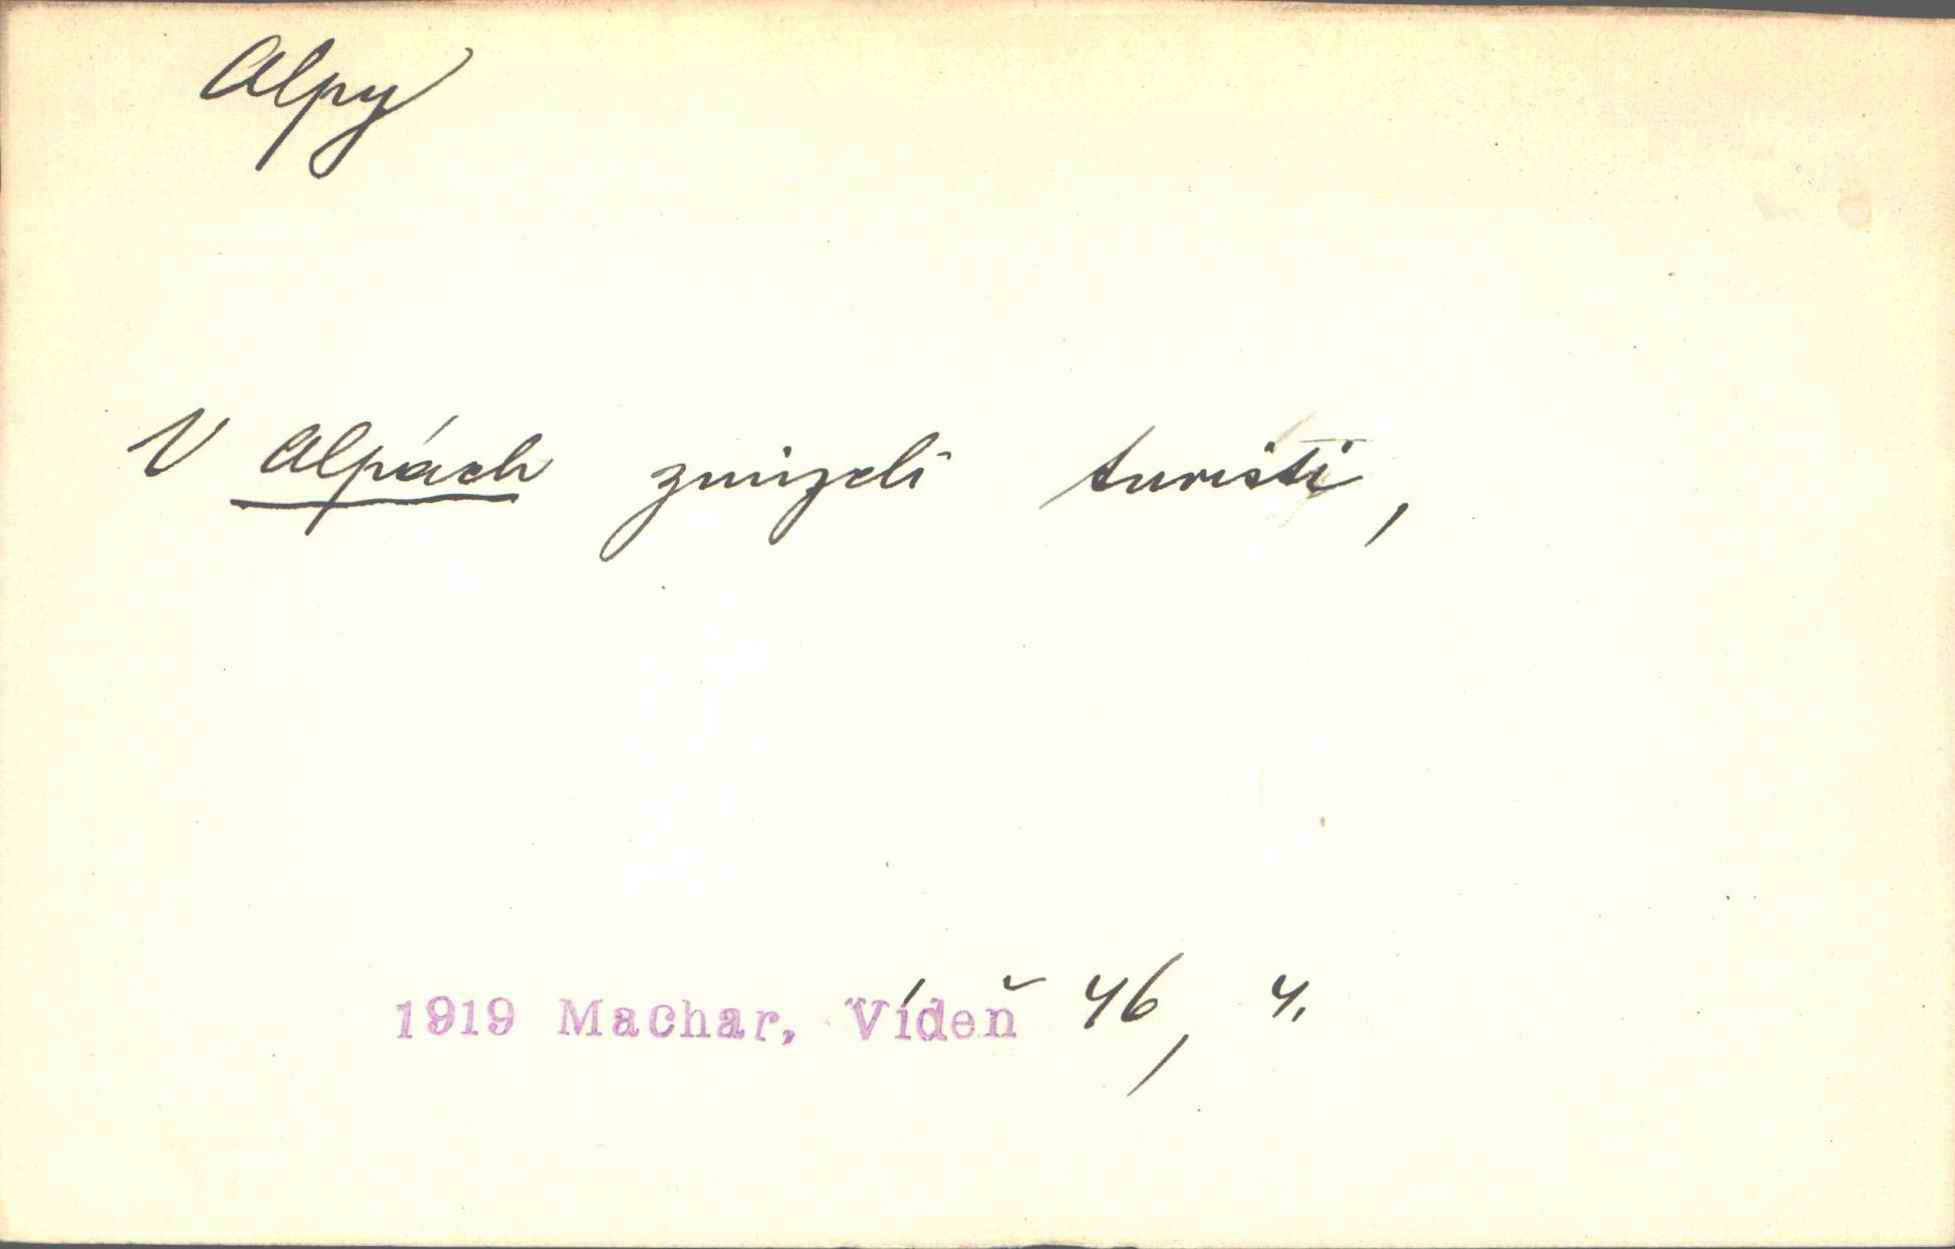 Alpy
V Alpách zmizeli turisti,
1919 Machar, Vídeň 46, 4.